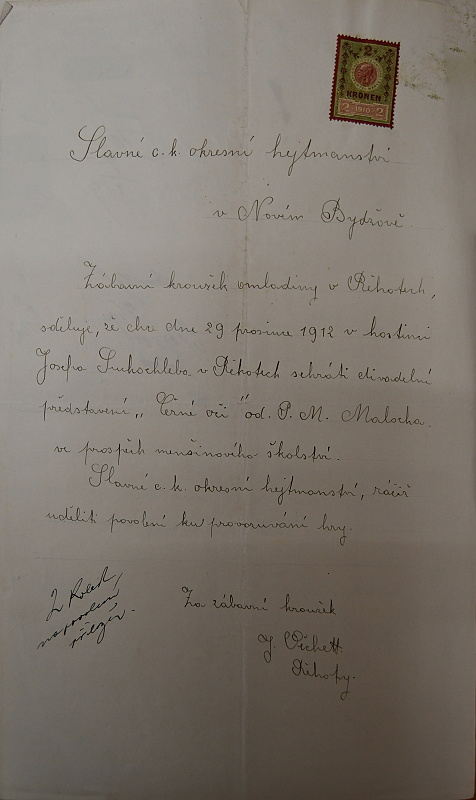 2 K
KRONEN
2 1910 2
Slavné c. k. okresní hejtmanství
v Novém Bydžově
Zábavní kroužek omladiny v Řehotech,
sděluje, že chce dne 29 prosince 1912 v hostinci
Josefa Suchochleba v Řehotech sehráti divadelní
představení „Černé oči" od P. M. Malocha.
ve prospěch menšinového školství.
Slavné c. k. okresní hejtmanství, račiž
uděliti povolení ku provozování hry.
Za zábavní kroužek
J.
Řehoty.
2
na povolení